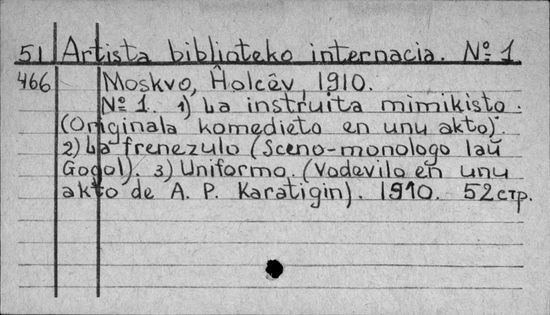 51 Artista biblioteko internacia. № 1
466 Moskvo, Ĥolcêv, 1910.
№ 1. 1) La instruita mimikisto.
(Originala komedieto en unu akto).
2) La frenezulo (Sceno-monologo laŭ
Gogol). 3) Uniformo. (Vodevilo en unu
akto de A. P. Karatigin). 1910. 52 стр.